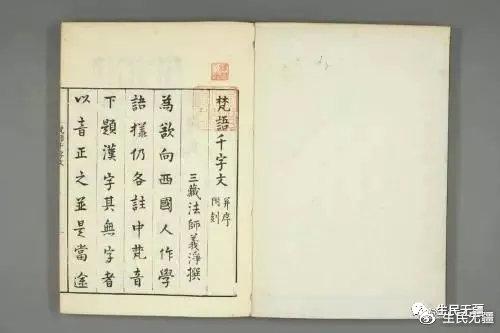 梵語千字文 并序
三藏法師義淨撰
為欲向西國人作學
語樣仍各註中梵音
下題漢字其無字者
以音正之並是當途
生民无疆
@生民无疆